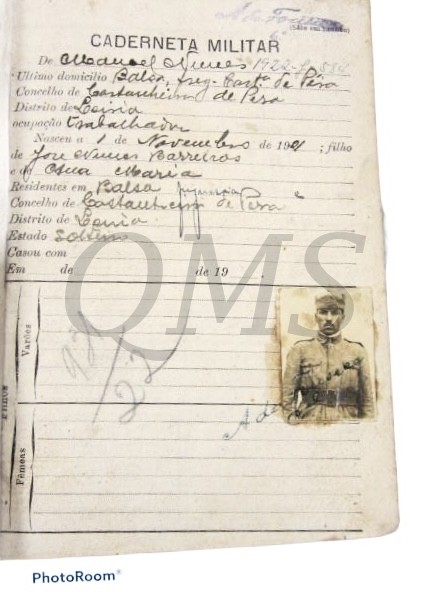 A de
CADERNETA MILITAR
De Manoel Nunes 1922
Ultimo domicilio Balsa, freg. Cast.ª de Pera
Concelho de Castanheira de Pera
Distrito de Leiria
ocupação trabalhador
Nasceu a 1 de Novembro de 1901; filho
de Jose Nunes Barreiros
e de Ana Maria
Residentes em Balsa freguesia e
Concelho de Castanheira de Pera
Distrito de Leiria
Estado solteiro
Casou com
Em de de 19 .
QMS
Filhos
Varões
Fêmeas
22
A de
PhotoRoom